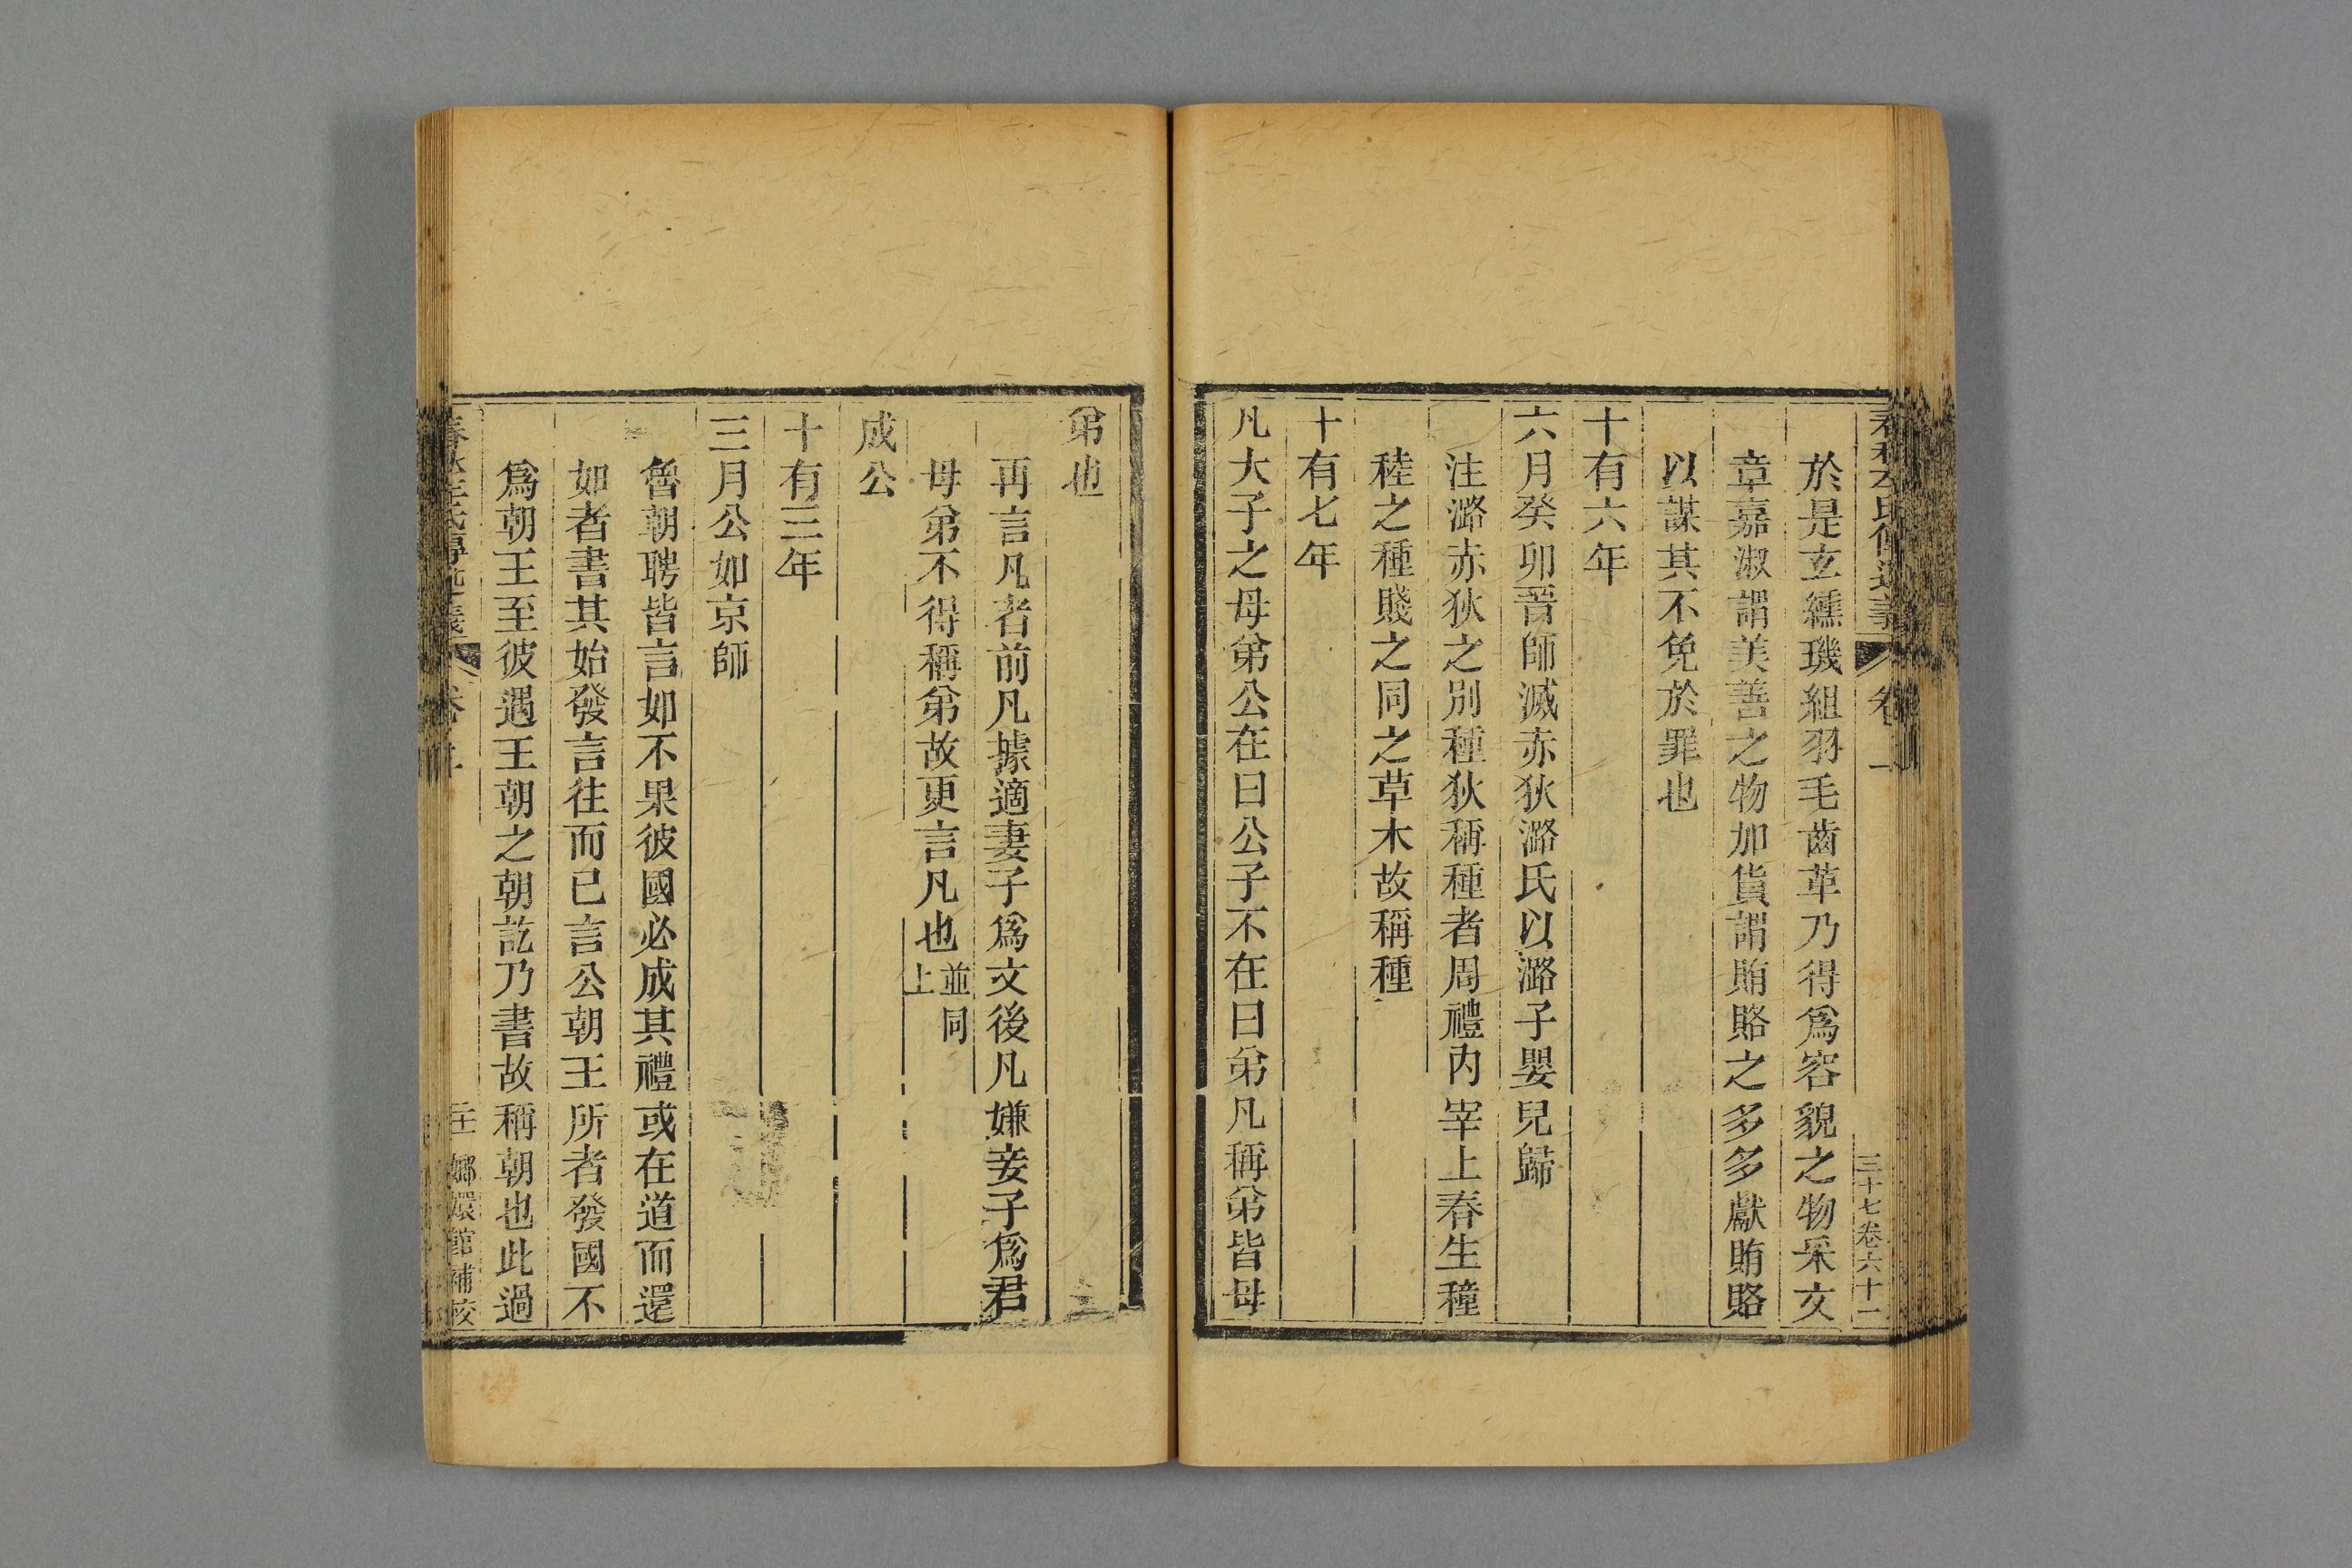 於是玄纁璣組羽毛齒革乃得爲容貌之物采文
章嘉淑謂美善之物加貨謂賄賂之多多獻賄賂
以謀其不免於罪也
十有六年
六月癸卯晉師滅赤狄潞氏以潞子嬰兒歸
注潞赤狄之別種狄稱種者周禮内宰上春生穜
稑之種賤之同之草木故稱種
十有七年
凡大子之母弟公在曰公子不在曰弟凡稱弟皆母
三十七卷六十二
弟也
再言凡者前凡據適妻子爲文後凡嫌妾子爲君
母弟不得稱弟故更言凡也並同上
成公
十有三年
三月公如京師
魯朝聘皆言如不果彼國必成其禮或在道而還
如者書其始發言往而已言公朝王所者發國不
爲朝王至彼遇王朝之朝訖乃書故稱朝也此過
嫏嬛館補校